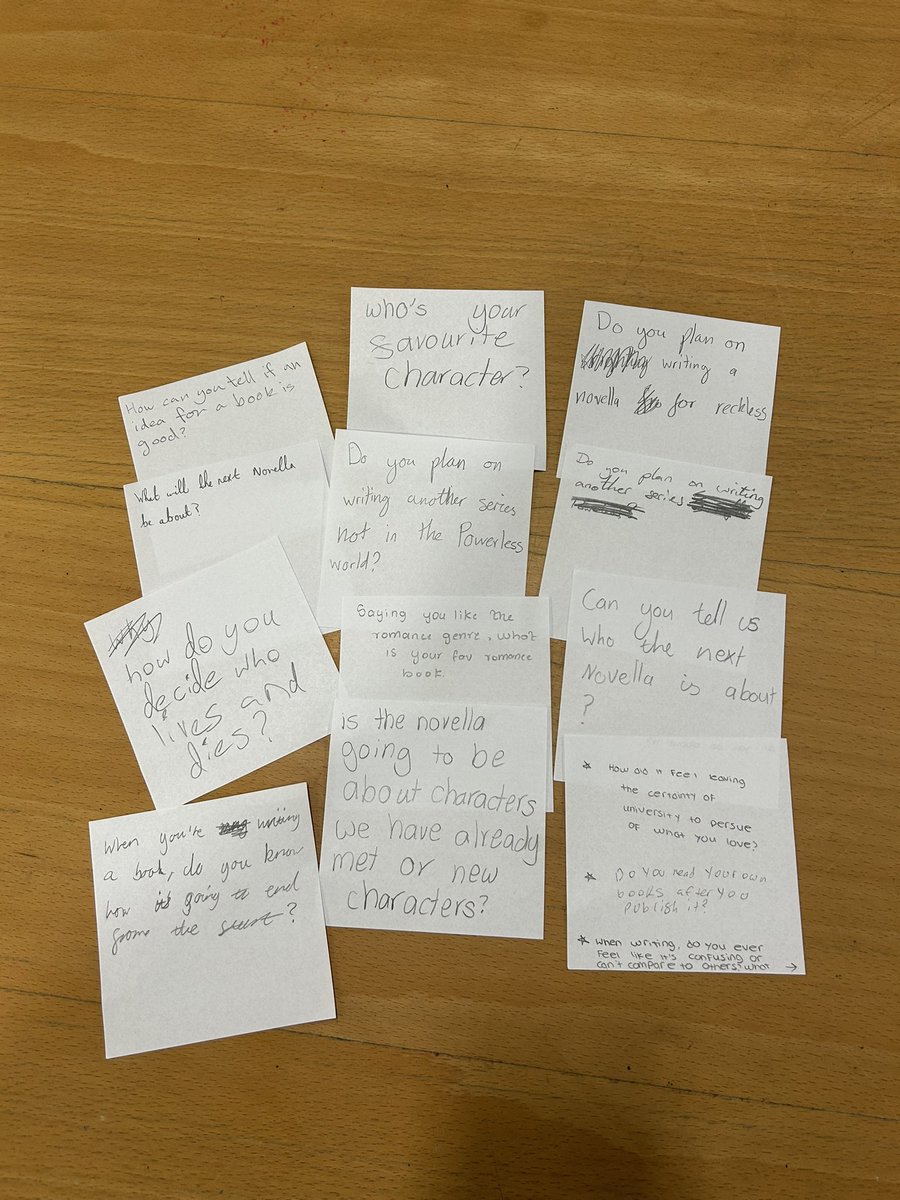 How can you tell if an
idea for a book is
good?
What will the next Novella
be about?
why
how do you
decide who
lives and
dies?
When you're writing
a book, do you know
how it's going to end
frome the start?
who's your
favourite
character?
Do you plan on
writing another series
not in the Powerless
world?
Saying you like the
romance genre, what
is your fav romance
book.
is the novella
going to be
about characters
we have already
met or new
characters?
Do you plan on
writing a
novella for reckless
Do you plan on writing
another series
Can you tell us
who the next
Novella is about
?
★ How did it feel leaving
the certainty of
university to persue
of what you love?
★ Do you read your own
books after you
publish it?
★ When writing, do you ever
feel like it's confusing or
can't compare to others, what →